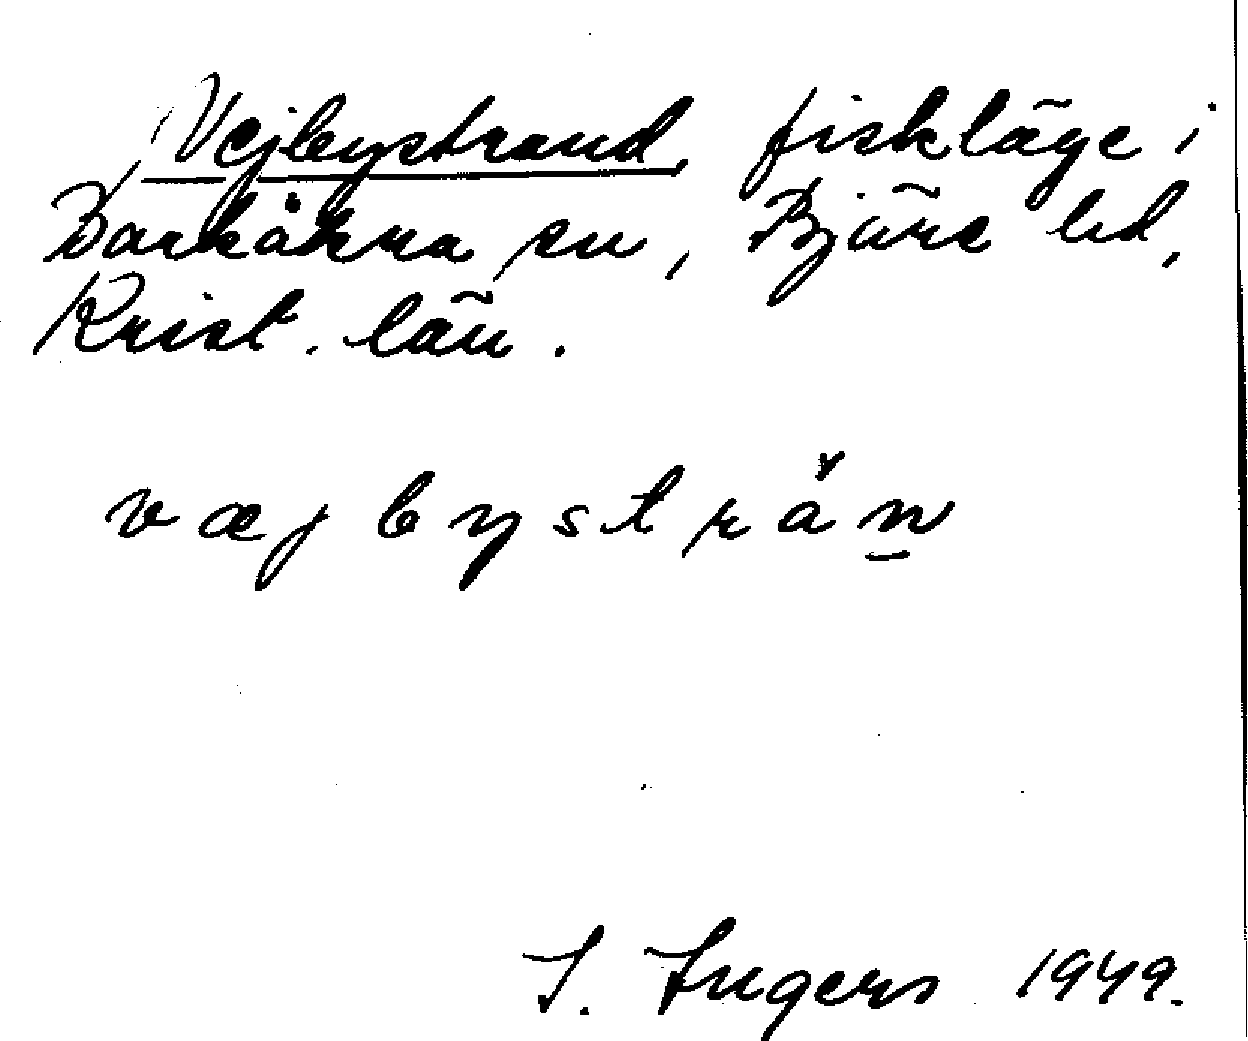 Vejbystrand, fiskläge i
Barkåkra sn, Bjäre hd,
Krist. län.
væjbystrǎn̲
I. Ingers 1949.